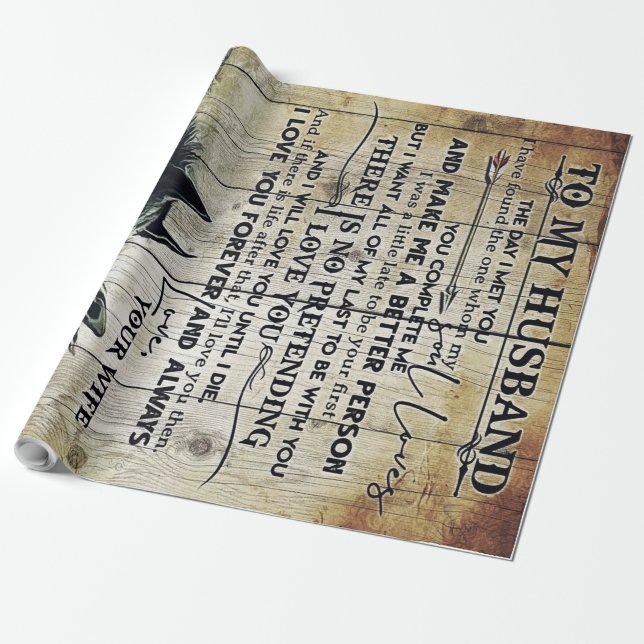 TO MY HUSBAND
I have found the one whom my
soul loves
THE DAY I MET YOU
YOU COMPLETE ME
AND MAKE ME A BETTER PERSON
I was a little late to be your first
BUT I WANT ALL OF MY LAST TO BE WITH YOU
THERE IS NO PRETENDING
I LOVE YOU
AND I WILL LOVE YOU UNTIL I DIE
And if there is life after that, I'll love you then,
I LOVE YOU FOREVER AND ALWAYS
Love,
YOUR WIFE